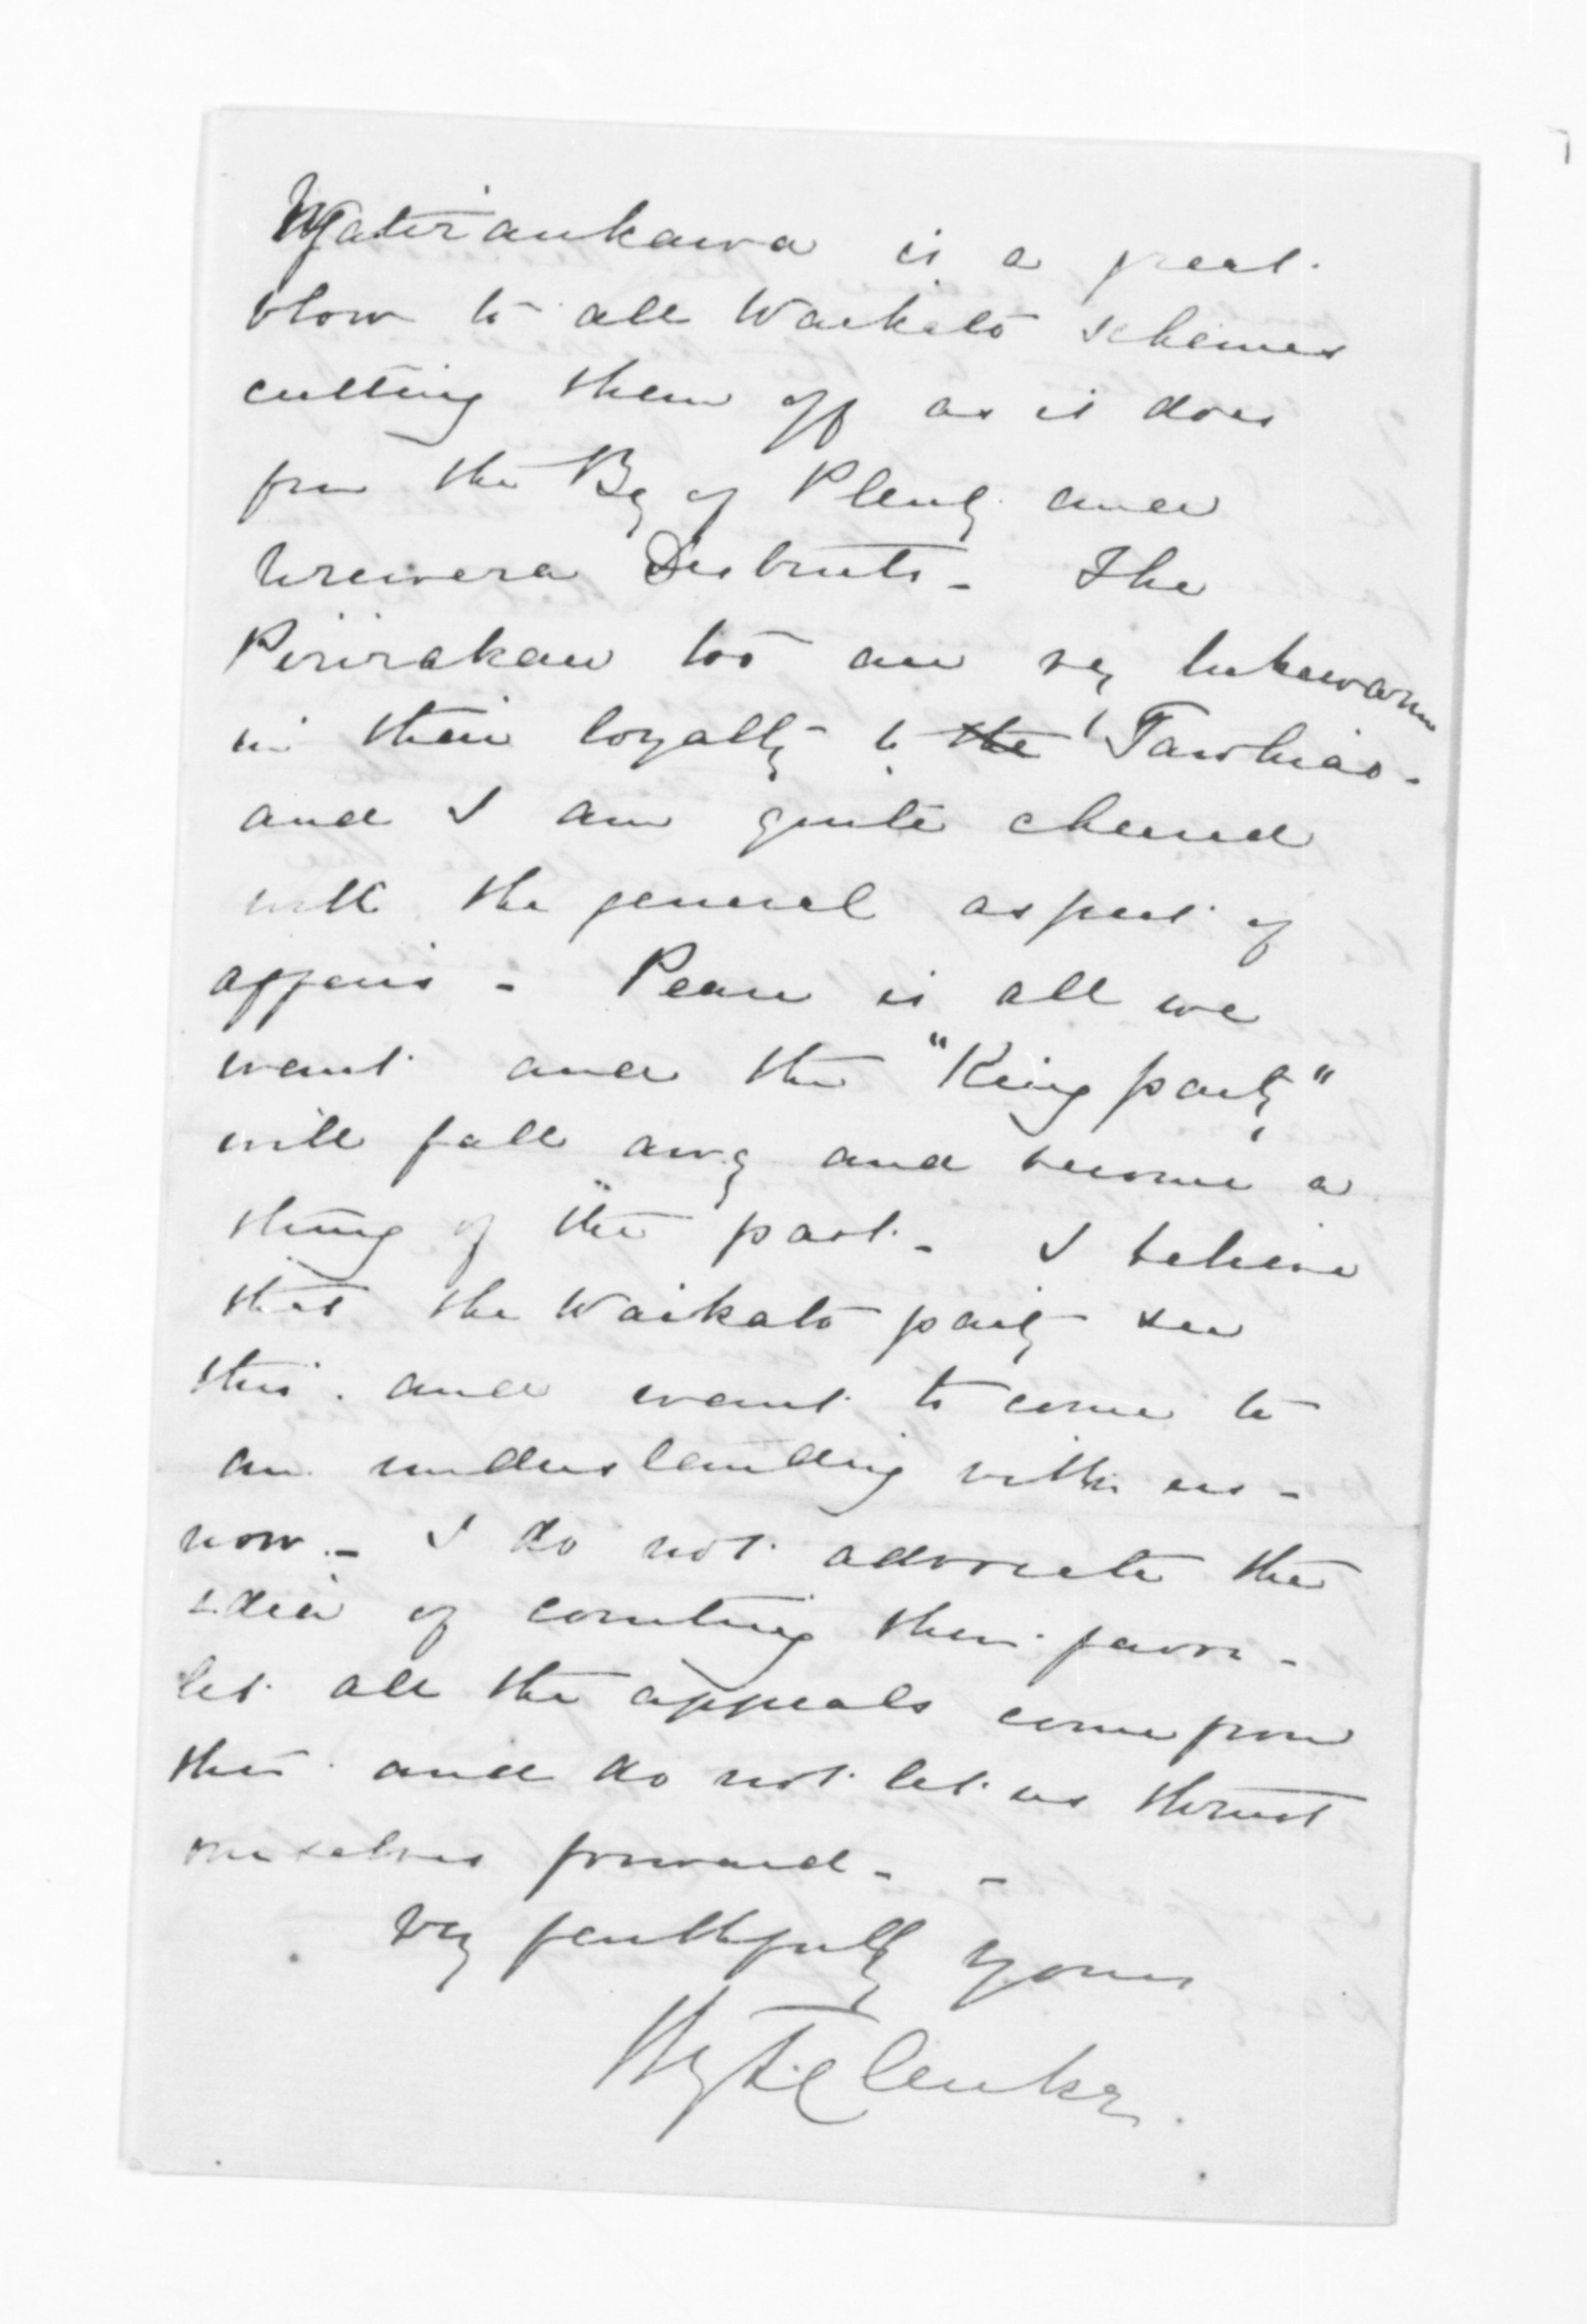 Ngatiraukawa is a great
blow to all Waikato schemes
cutting them off as it does
from the Bay of Plenty and
Urewera Districts - The
Pirirakau too are very lukewarm
in their loyalty to the Tawhiao -
and I am quite cheered
with the general aspect of
affairs - Peace is all we
want and the "King party"
will fall away and become a
thing of the past - I believe
that the Waikato party see
this and want to come to
an understanding with us -
now - I do not advocate the
idea of courting their favor -
let all the appeals come from
them and do not let us thrust
ourselves forward - -
Very faithfully yours
Hy T Clarke.